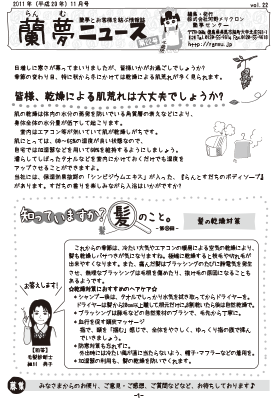 2011年（平成23年）11月号
vol.22
らんむ
蘭夢とお客様を結ぶ情報誌
蘭夢ニュース
編集・発行
株式会社河野メリクロン
蘭夢センター
http://rgmsu.jp
日増しに寒さが募ってまいりましたが、皆様いかがお過ごしでしょうか？
季節の変わり目、特に秋から冬にかけては乾燥による肌荒れが多く見られます。
皆様、乾燥による肌荒れは大丈夫でしょうか？
肌の乾燥は体内の水分の蒸発を防いでいる角質層の衰えなどにより、
身体全体の水分量が低下して起こります。
室内はエアコン等が効いていて肌が乾燥しがちです。
肌にとっては、60～65％の湿度が良い状態なので、
自宅では加湿器などを用いて60％を維持するようにしましょう。
濡らしてしぼったタオルなどを室内にかけておくだけでも湿度を
アップさせることができますよ。
当社には、保湿効果抜群の「シンビジウムエキス」が入った、『らんとすだちのボディソープ』
があります。すだちの香りを楽しみながら入浴はいかがですか？
知っていますか？髪のこと。
髪の乾燥対策
これからの季節は、冷たい大気やエアコンの暖房による空気の乾燥により、
髪も乾燥しパサつきが気になりますね。極端に乾燥すると枝毛や切れ毛が
出来やすくなります。また、傷んだ髪はブラッシングのたびに静電気を発生
させ、無理なブラッシングは毛根を傷めたり、抜け毛の原因になることも
あるようです。
◇乾燥対策におすすめのヘアケア◇
お答えします！
【回答】
毛髪診断士
＊血行を促す頭皮マッサージ
指で、頭を「掴む」感じで、全体をやさしく、ゆっくり指の腹で揉ん
でいきましょう。
＊防寒対策も忘れずに。
外出時には冷たい風が直に当たらないよう、帽子・マフラーなどの着用を。
＊加湿器の利用も、髪の乾燥を防いでくれます。
募集
みなさまからのお便り、ご意見・ご感想、ご質問などなど、お待ちしております♪
-1-